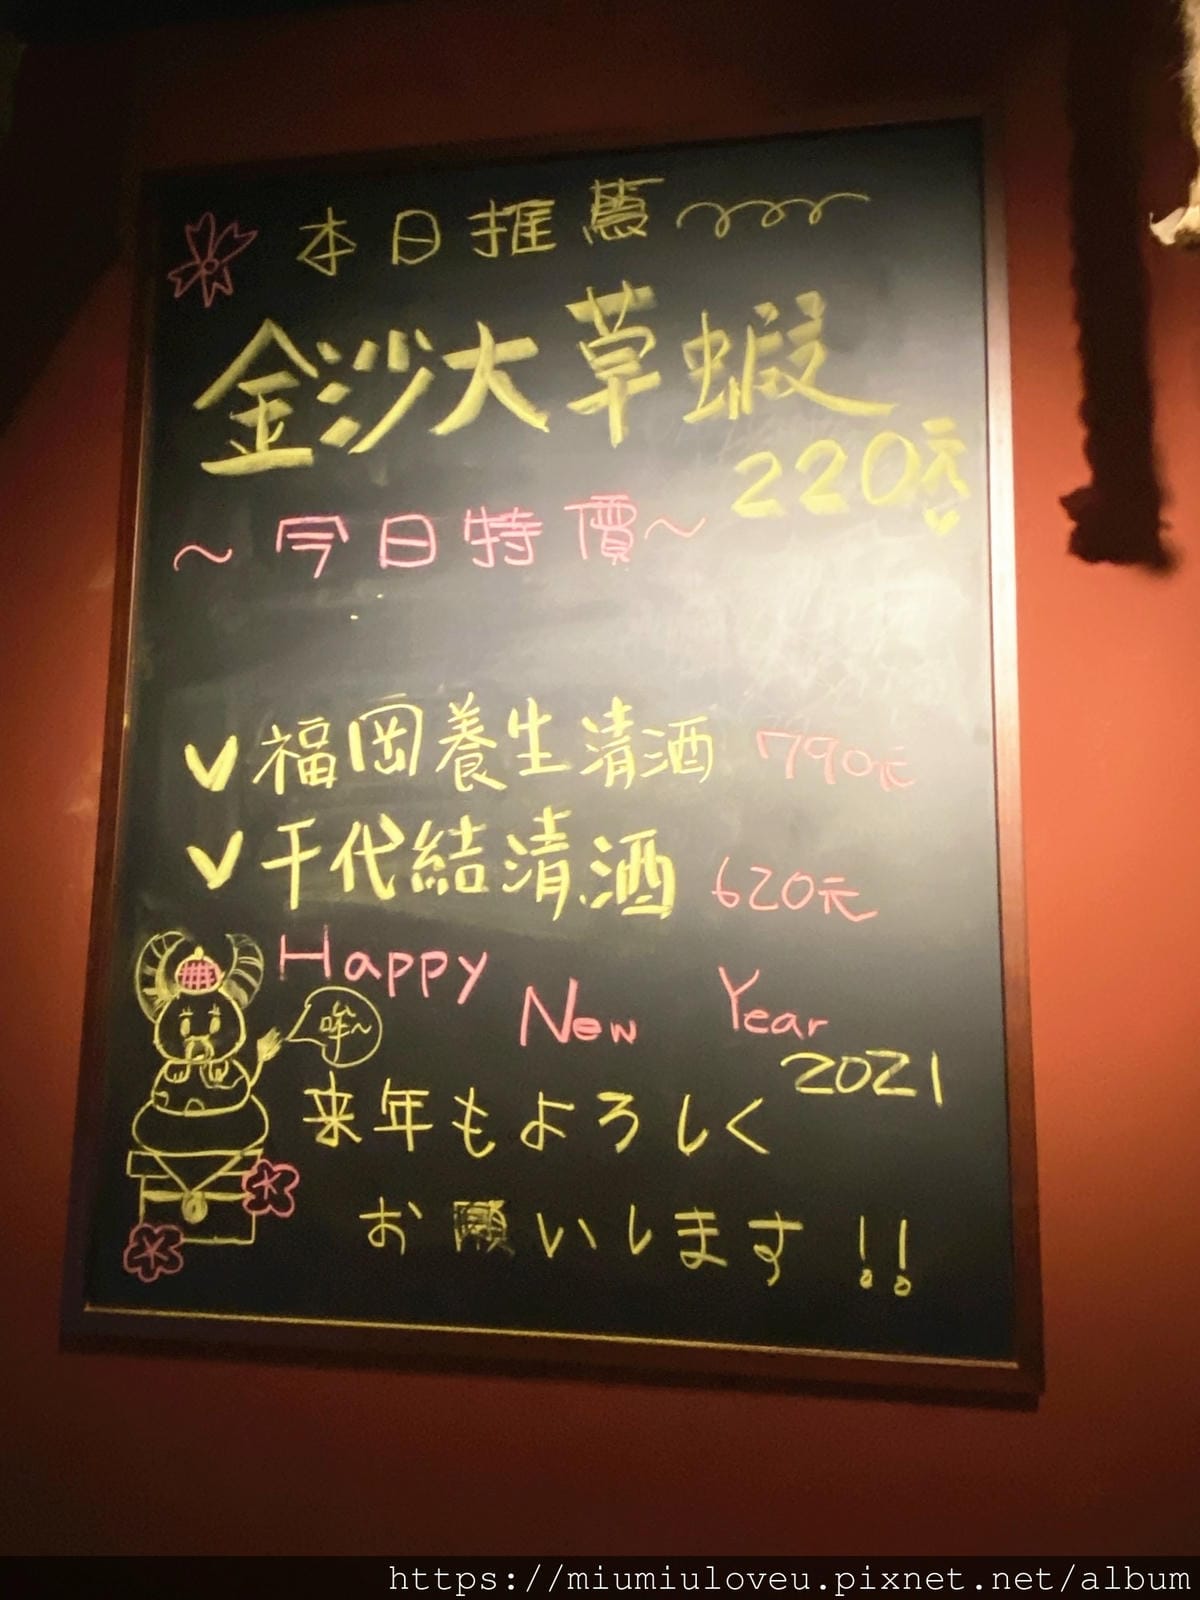 本日推薦
金沙大草蝦
220元
~今日特價~
福岡養生清酒 790元
千代結清酒 620元
Happy New Year
2021
哞~
来年もよろしく
お願いします!!
https://miumiuloveu.pixnet.net/album